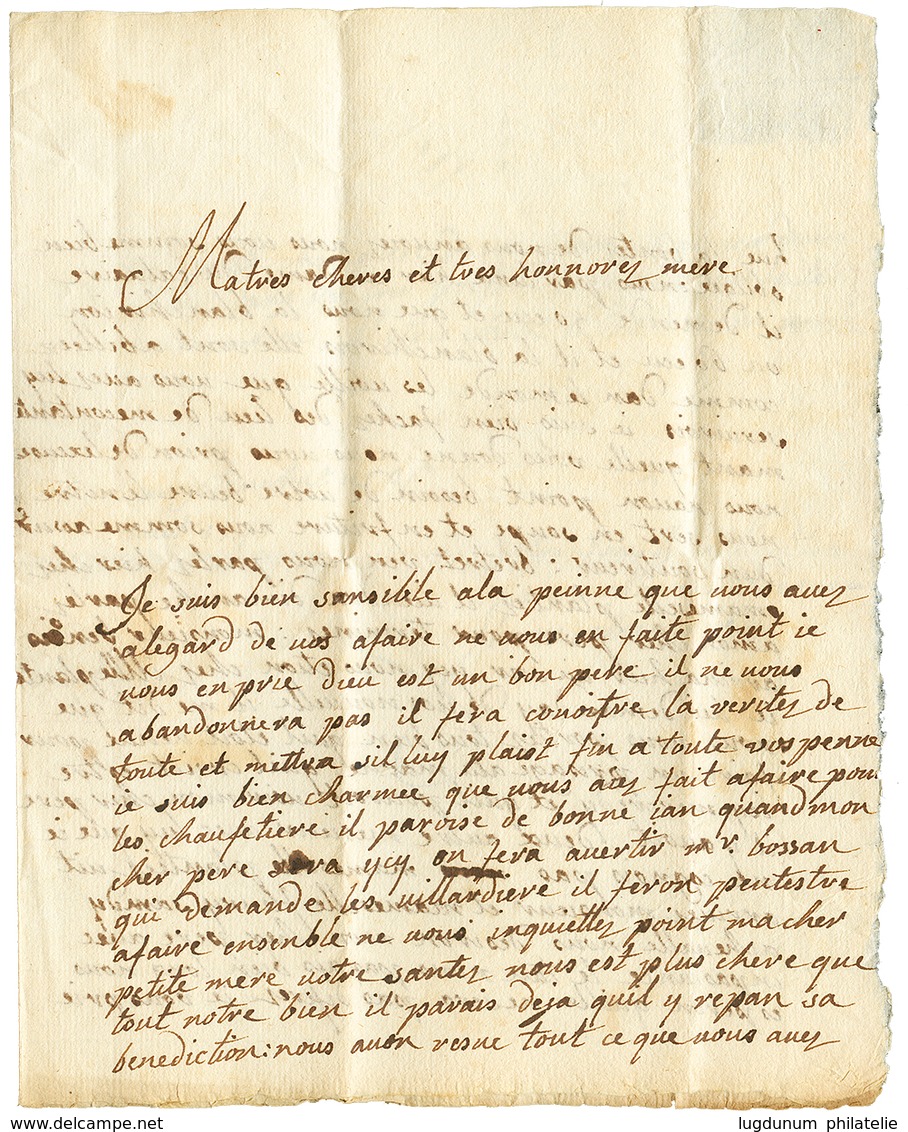 Matres cheres et tres honnorez mere
Je suis bien sansible ala peinne que vous avez
alegard de vos afaire ne vous en faite point ie
vous en prie dieu est un bon pere il ne vous
abandonnera pas il fera conoitre la veritez de
toute et mettra sil luy plaist fin a toute vos penne
ie suis bien charmee que vous avez fait afaire pour
les chaufetiere il paroise de bonne ian quand mon
cher pere sera ycy on fera avertir mr. bossan
qui demande les villardiere il feron peutestre
afaire ensenble ne vous inquiettez point ma cher
petite mere votre santez nous est plus chere que
tout notre bien il parais deja quil y repan sa
benediction: nous avon resue tout ce que vous avez
delcampe.net
lugdunum philatelie